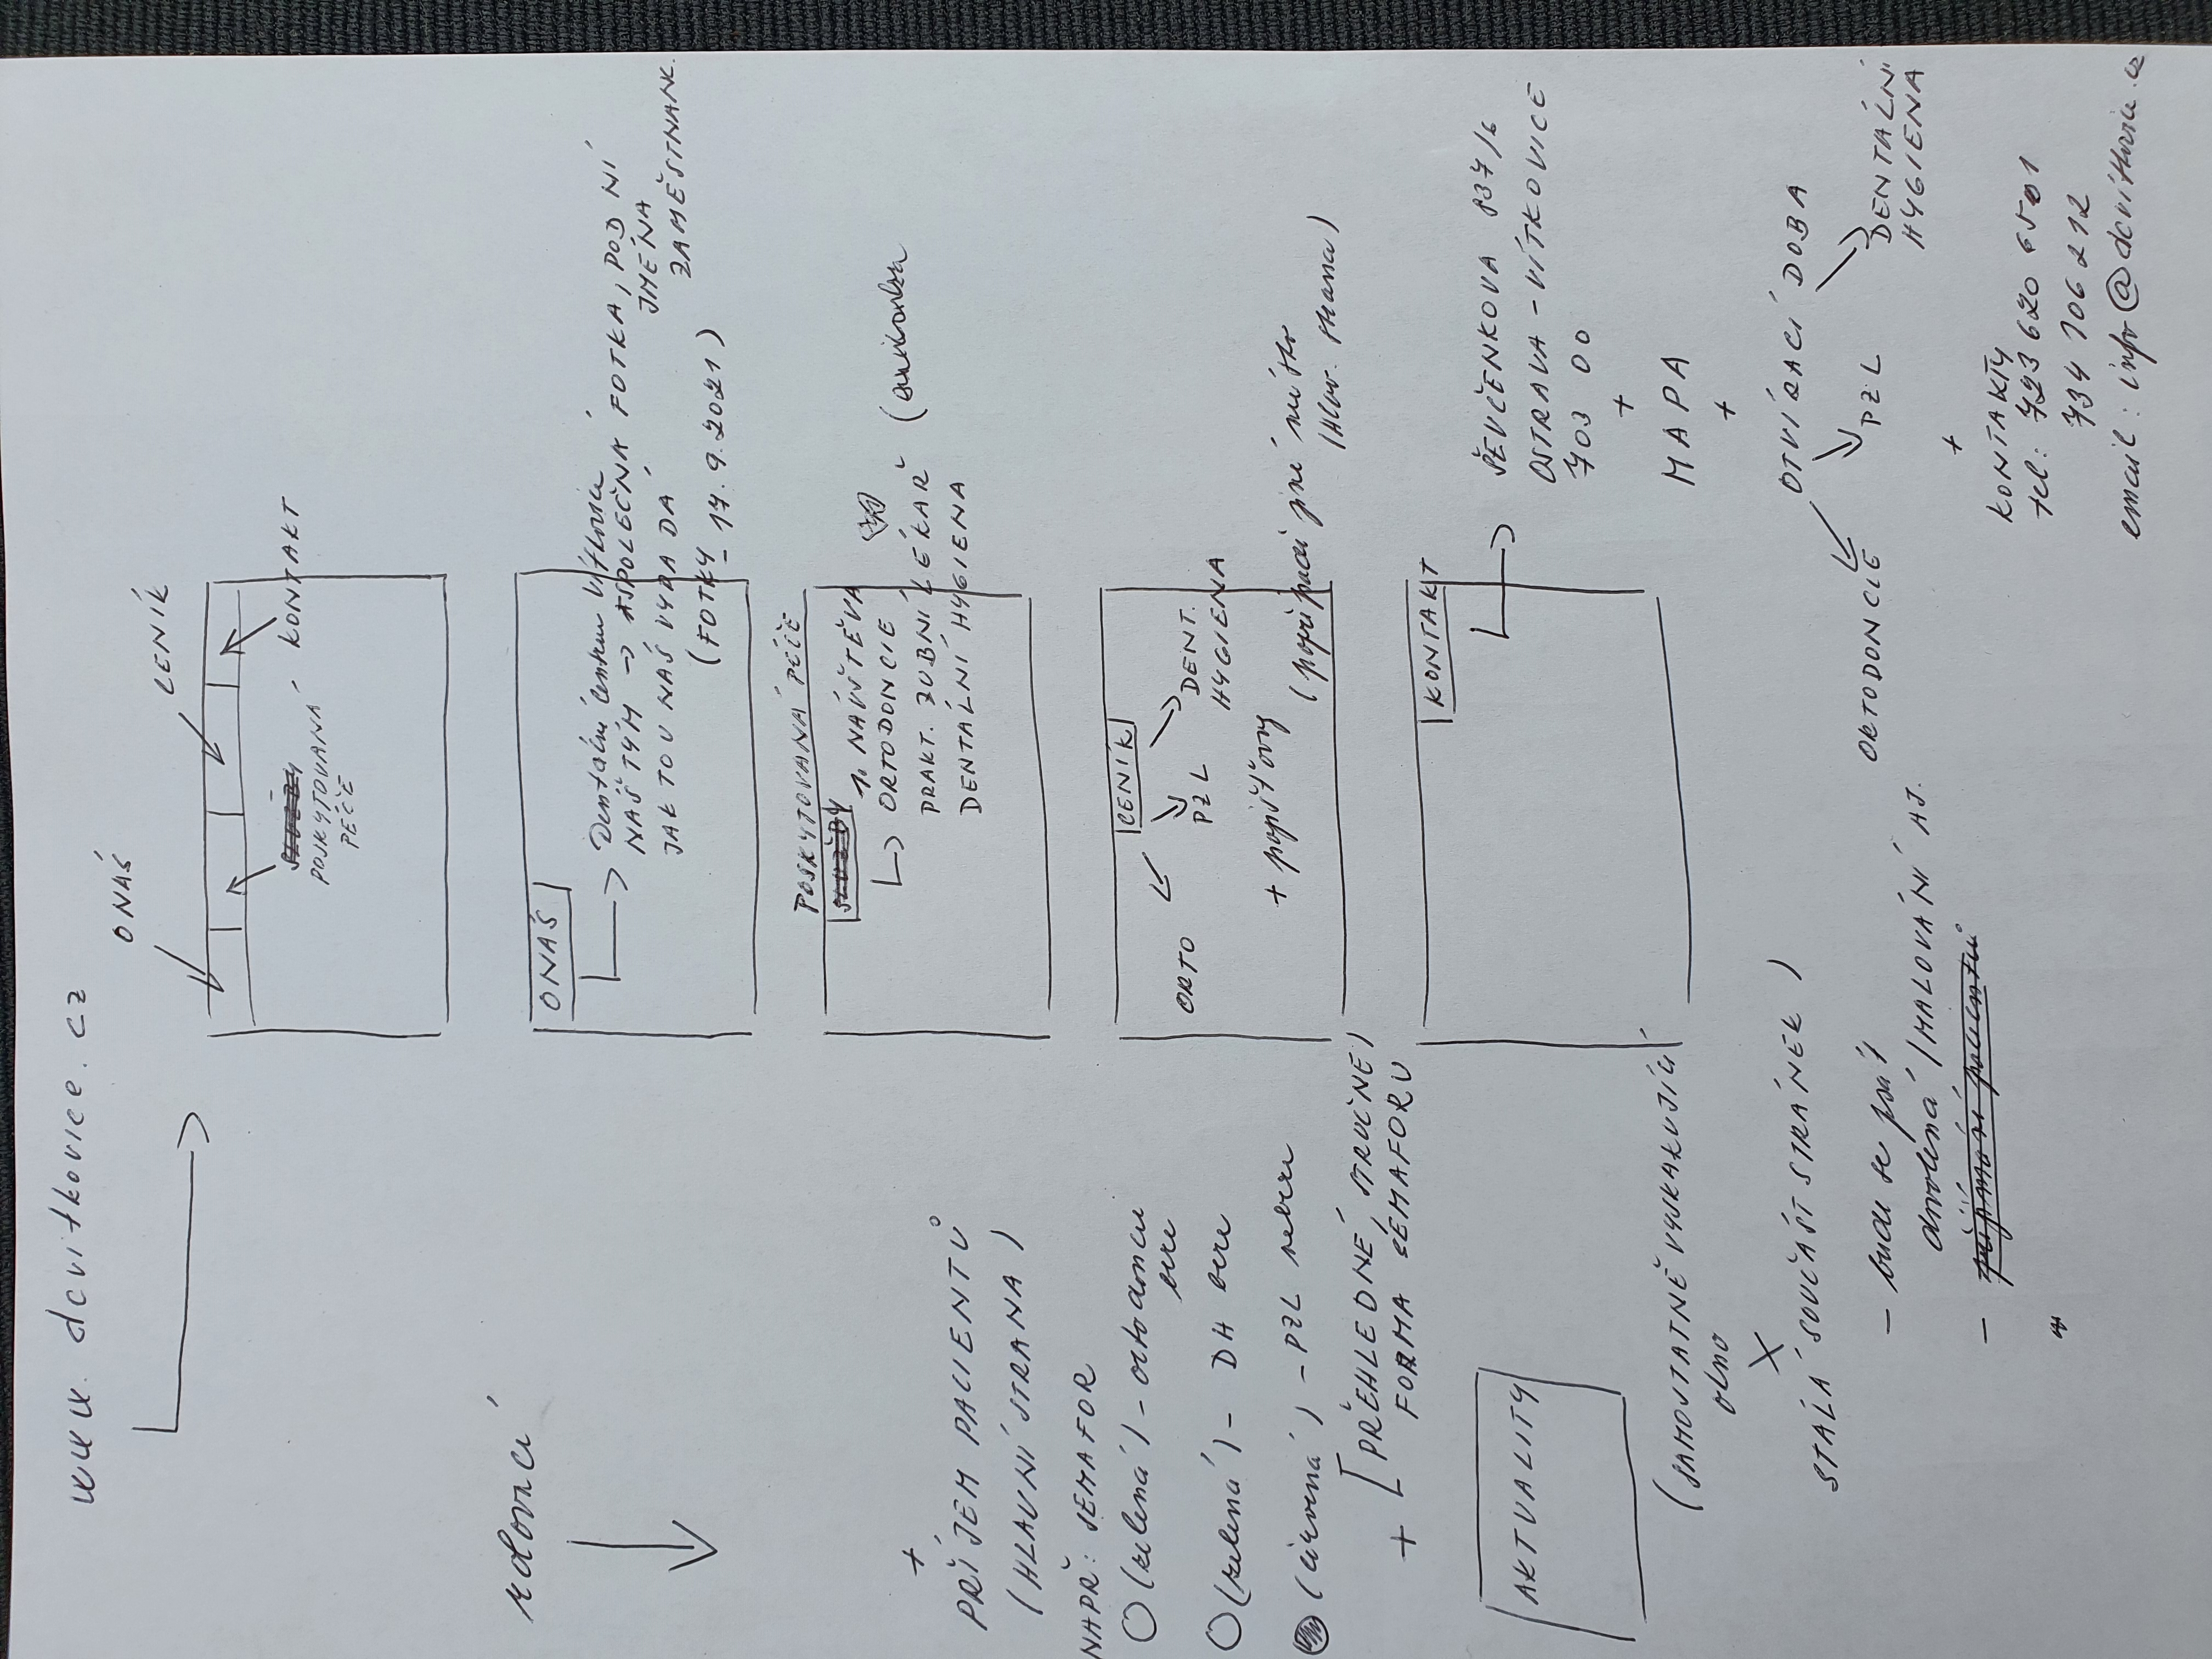 www.dcvitkovice.cz
O NÁS
CENÍK
POSKYTOVANÁ
PÉČE
KONTAKT
O NÁS
Dentální centrum Vítkovice
NÁŠ TÝM → SPOLEČNÁ FOTKA, POD NÍ
JMÉNA
ZAMĚSTNANC.
JAK TO U NÁS VYPADÁ
(FOTKY - 17.9.2021)
POSKYTOVANÁ PÉČE
1. NÁVŠTĚVA
ORTODONCIE
PRAKT. ZUBNÍ LÉKAŘ
DENTÁLNÍ HYGIENA
CENÍK
ORTO
PZL
DENT.
HYGIENA
+ pojišťovny
(popřípadě jiné místo
(Hlav. strana)
KONTAKT
ŠEVČENKOVA 837/6
OSTRAVA - VÍTKOVICE
703 00
+
MAPA
+
OTVÍRACÍ DOBA
ORTODONCIE
PZL
DENTÁLNÍ
HYGIENA
+
KONTAKTY
tel: 723 620 501
734 706 212
email: info@dcvitkovice.cz
+
PŘÍJEM PACIENTŮ
(HLAVNÍ STRANA)
NAPŘ: SEMAFOR
(zelená) - ortodoncie
bere
(zelená) - DH bere
(červená) - PZL nebere
+ [PŘEHLEDNÉ, STRUČNÉ]
FORMA SEMAFORU
AKTUALITY
(SAMOSTATNĚ VYSKAKUJÍCÍ
okno
X
STÁLÁ SOUČÁST STRÁNEK)
- bude se psát
dovolená / MALOVÁNÍ AJ.
- přijímání pacientů